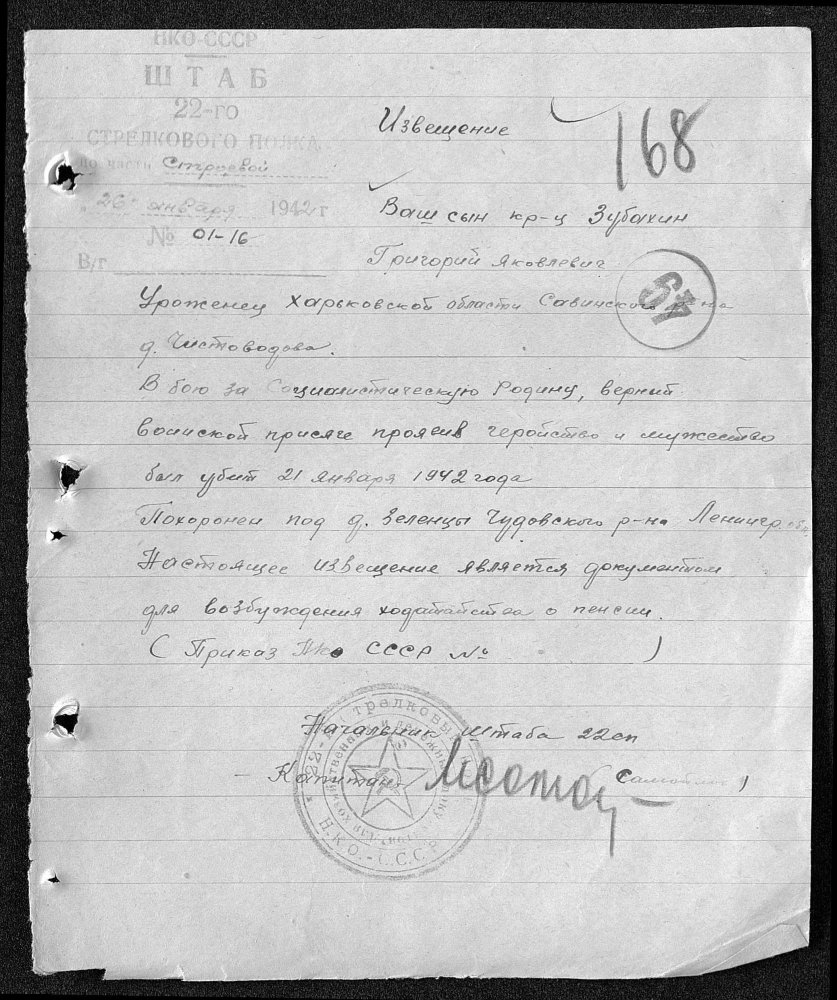 НКО-СССР
ШТАБ
22-го
СТРЕЛКОВОГО ПОЛКА
по части Строевой
"26" января 1942 г
№ 01-16
В/г
Извещение
168
Ваш сын кр-ц Зубахин
Григорий Яковлевич
67
Уроженец Харьковской области Савинского р-на
д. Чистоводова.
В бою за Социалистическую Родину, верный
воинской присяге проявив геройство и мужество
был убит 21 января 1942 года
Похоронен под д. Зеленцы Чудовского р-на Ленингр. обл.
Настоящее извещение является документом
для возбуждения ходатайства о пенсии.
(Приказ НКО СССР № )
Начальник штаба 22сп
Капитан
Н.К.О.-С.С.С.Р.